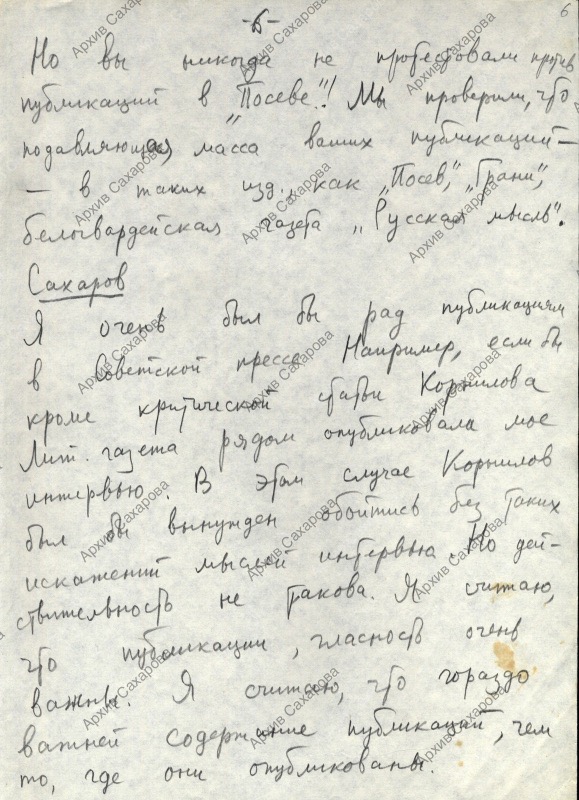 -6-
6
Но вы никогда не протестовали против
публикаций в „Посеве"! Мы проверили, что
подавляющая масса ваших публикаций —
— в таких изд., как „Посев", „Грани",
белогвардейская газета „Русская мысль".
Сахаров
Я очень был бы рад публикациям
в Советской прессе. Например, если бы
кроме критической статьи Корнилова
Лит. газета рядом опубликовала мое
интервью. В этом случае Корнилов
был бы вынужден обойтись без таких
искажений мыслей интервью. Но дей-
ствительность не такова. Я считаю,
что публикации, гласность очень
важны. Я считаю, что гораздо
важней содержание публикаций, чем
то, где они опубликованы.
Архив Сахарова